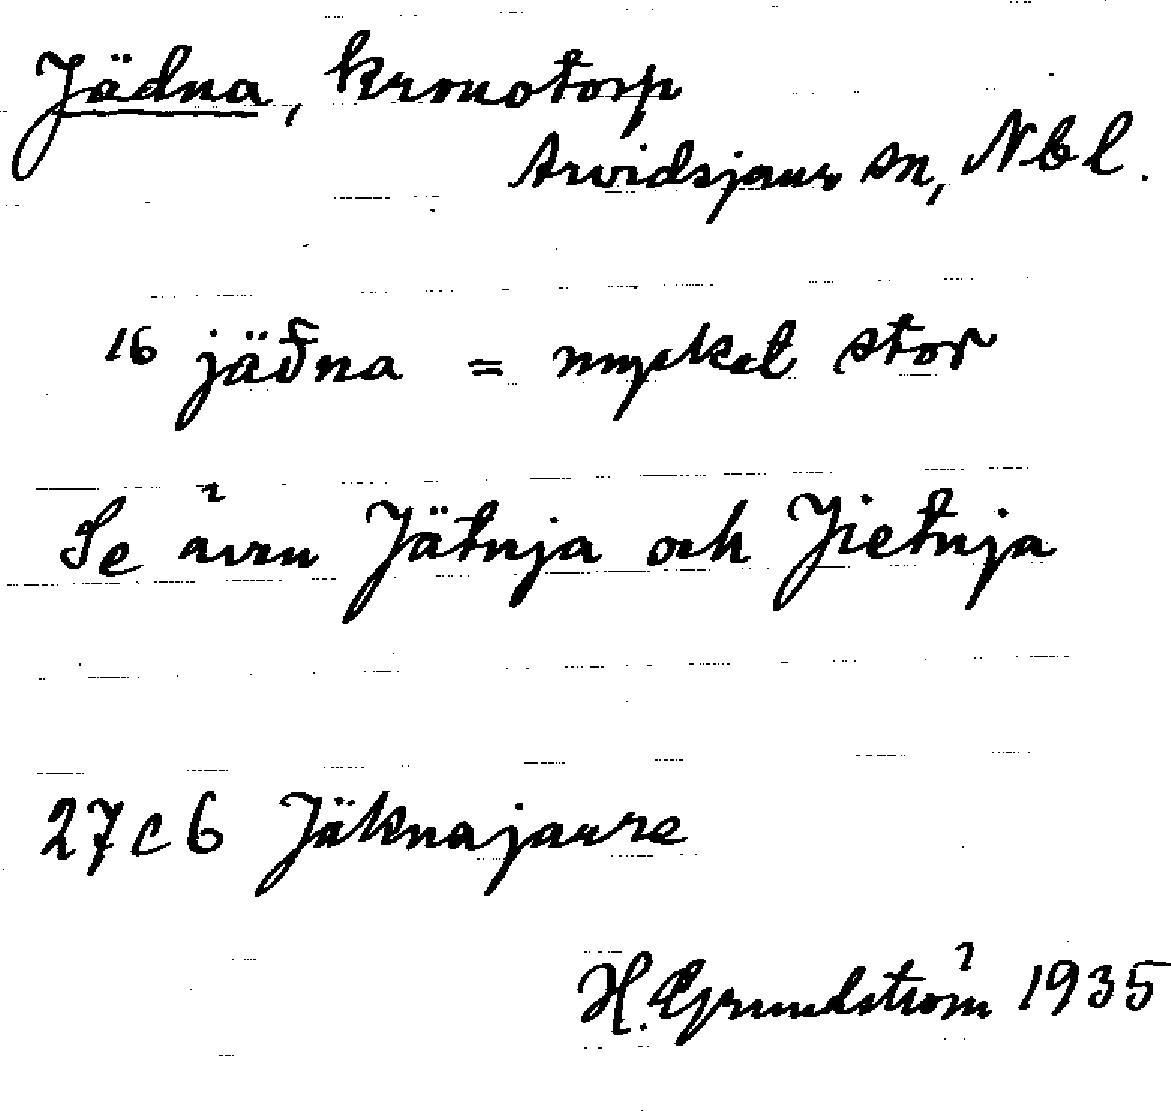 Jädna, kronotorp
Arvidsjaur sn, Nbl.
16 jäđna = mycket stor
Se även Jätnja och Jietnja
27c6 Jäknajaure
H. Grundström 1935